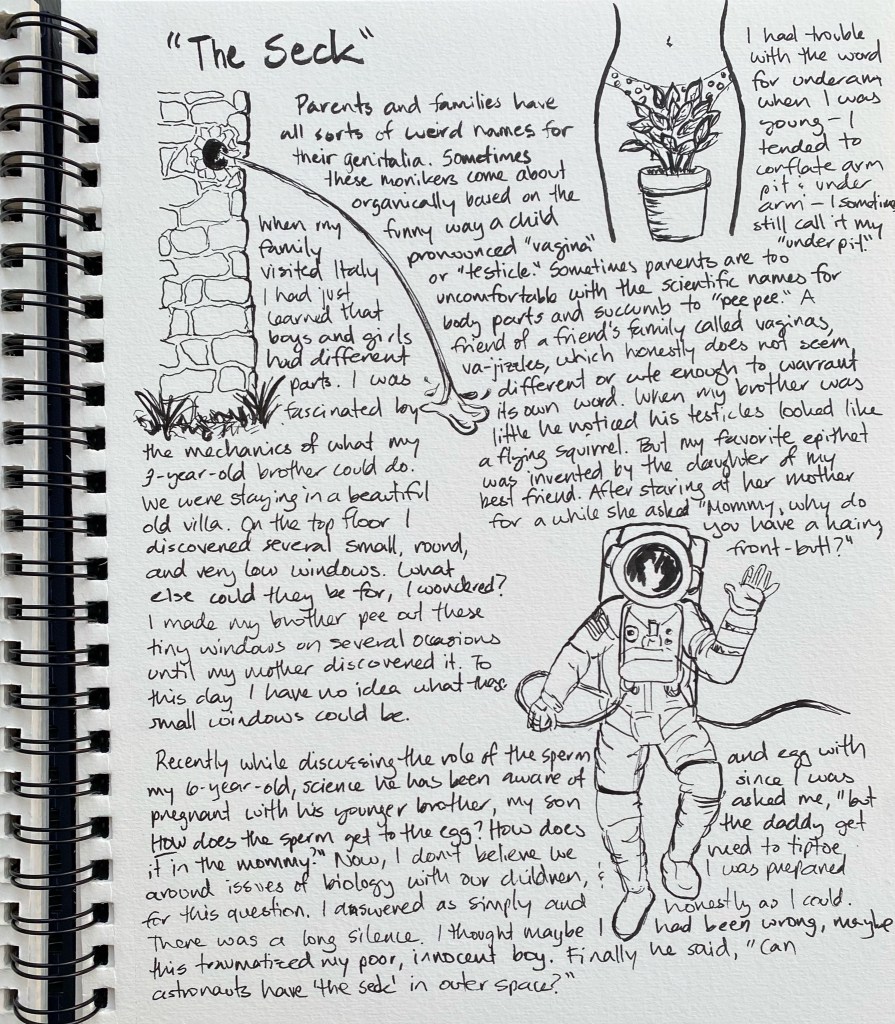 "The Seck"
Parents and families have
all sorts of weird names for
their genitalia. Sometimes
these monikers come about
organically based on the
funny way a child
pronounced "vagina"
or "testicle." Sometimes parents are too
uncomfortable with the scientific names for
body parts and succumb to "pee pee." A
friend of a friend's family called vaginas,
va-jizzles, which honestly does not seem
different or cute enough to warrant
its own word. When my brother was
little he noticed his testicles looked like
a flying squirrel. But my favorite epithet
was invented by the daughter of my
best friend. After staring at her mother
for a while she asked "Mommy, why do
you have a hairy
front-butt?"
I had trouble
with the word
for underarm
when I was
young - I
tended to
conflate arm
pit & under
arm - I sometimes
still call it my
"underpit."
When my
family
visited Italy
I had just
learned that
boys and girls
had different
parts. I was
fascinated by
the mechanics of what my
3-year-old brother could do.
We were staying in a beautiful
old villa. On the top floor I
discovered several small, round,
and very low windows. What
else could they be for, I wondered?
I made my brother pee out these
tiny windows on several occasions
until my mother discovered it. To
this day I have no idea what those
small windows could be.
Recently while discussing the role of the sperm and egg with
my 6-year-old, science he has been aware of since I was
pregnant with his younger brother, my son asked me, "but
How does the sperm get to the egg? How does the daddy get
it in the mommy?" Now, I don't believe we need to tiptoe
around issues of biology with our children, & I was prepared
for this question. I answered as simply and honestly as I could.
There was a long silence. I thought maybe I had been wrong, maybe
this traumatized my poor, innocent boy. Finally he said, "Can
astronauts have 'the seck' in outer space?"